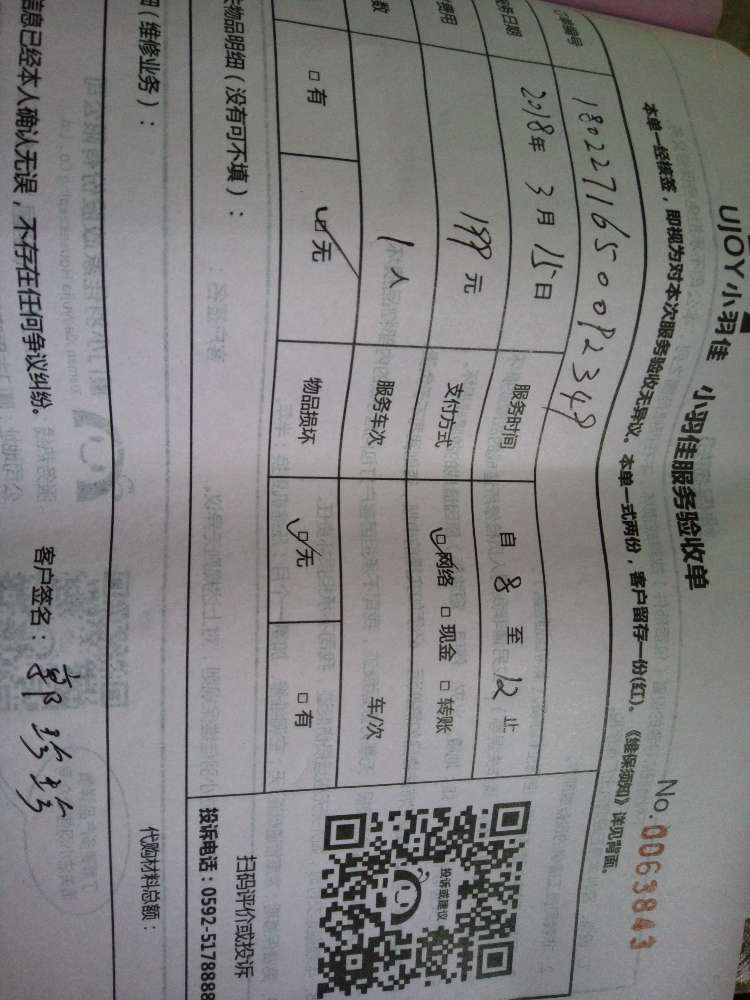 UJOY小羽佳 小羽佳服务验收单
No.0063843
本单一经接签，即视为对本次服务验收无异议。本单一式两份，客户留存一份(红)。《维保须知》详见背面。
编号 1802271650082349
日期 2018年3月15日 服务时间 自 8 至 12 止
费用 199元 支付方式 ☑网络 □现金 □转账
数 1人 服务车次 车/次
□有 ☑无 物品损坏 ☑无 □有
投诉或建议
扫码评价或投诉
投诉电话：0592-5178888
物品明细（没有可不填）：
（维修业务）：
代购材料总额：
信息已经本人确认无误，不存在任何争议纠纷。
客户签名：郭珍珍